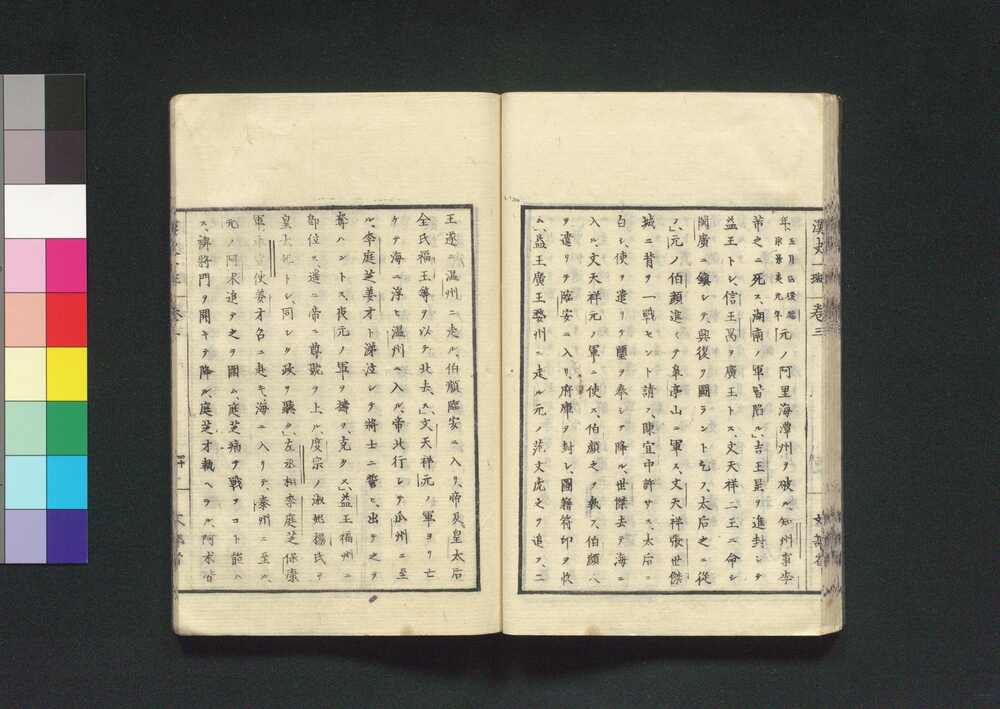 漢史一班 卷三
年、五月以後端宗景炎元年、元ノ阿里海潭州ヲ破ル、知州事李
芾之ニ死ス、湖南ノ軍皆陷ル、吉王昰ヲ進封シテ
益王トシ、信王昺ヲ廣王トス、文天祥二王ニ命シ
閩廣ニ鎭シテ、興復ヲ圖ラントヲ乞フ、太后之ニ從
フ、元ノ伯顏進ミテ皐亭山ニ軍ス、文天祥張世傑
城ニ背ヲ一戰セント請フ、陳宜中許サス、太后ニ
白シ、使ヲ遣リテ璽ヲ奉シテ降ル、世傑去テ海ニ
入ル、文天祥元ノ軍ニ使ス、伯顏之ヲ執フ、伯顏人
ヲ遣リテ臨安ニ入リ、府庫ヲ封シ、圖籍符印ヲ收
ム、益王廣王婺州ニ走ル、元ノ范文虎之ヲ追フ、二
王遂ニ溫州ニ走ル、伯顏臨安ニ入リ、帝及皇太后
全氏福王等ヲ以テ北去ス、文天祥元ノ軍ヨリ亡
ケテ海ニ浮ヒ溫州ニ入ル、帝北行シテ瓜州ニ至
ル、李庭芝姜才ト涕泣シテ將士ニ誓ヒ、出テ之ヲ
奪ハントス、夜元ノ軍ヲ擣ヲ、克タス、益王福州ニ
卽位ス、遙ニ帝ニ尊號ヲ上ル、度宗ノ淑妃楊氏ヲ
皇太妃トシ、同シク政ヲ聽ク、左丞相李庭芝保康
軍承宣使姜才召ニ赴キ、海ニ入リテ、泰州ニ至ル、
元ノ阿朮追テ之ヲ圍ム、庭芝病ヲ戰フコト能ハ
ス、諸將門ヲ開キテ降ル、庭芝才執ヘラル、阿朮皆